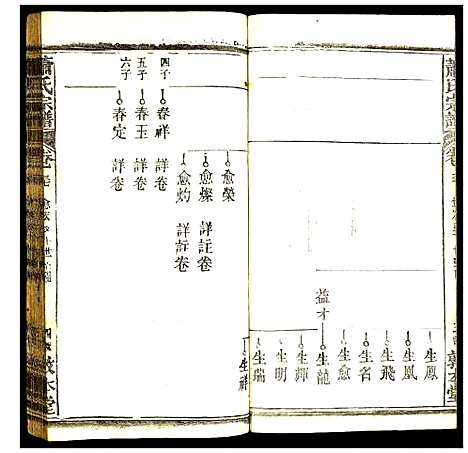 蕭氏宗譜
敦本堂
益才
生鳳
生凰
生飛
生名
生愈
生龍
生輝
生明
生瑞
生祥
愈榮
愈燦 詳註卷
愈灼 詳註卷
四子 春祥 詳卷
五子 春玉 詳卷
六子 春定 詳卷
蕭氏宗譜
敦本堂